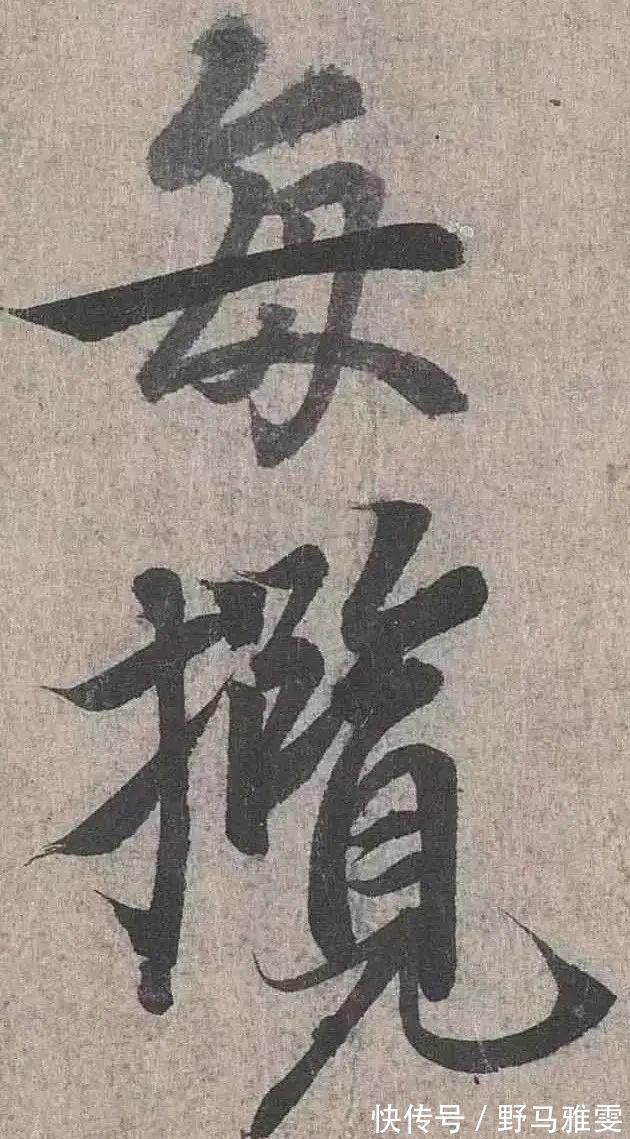 每攬
快传号 / 野马雅雯